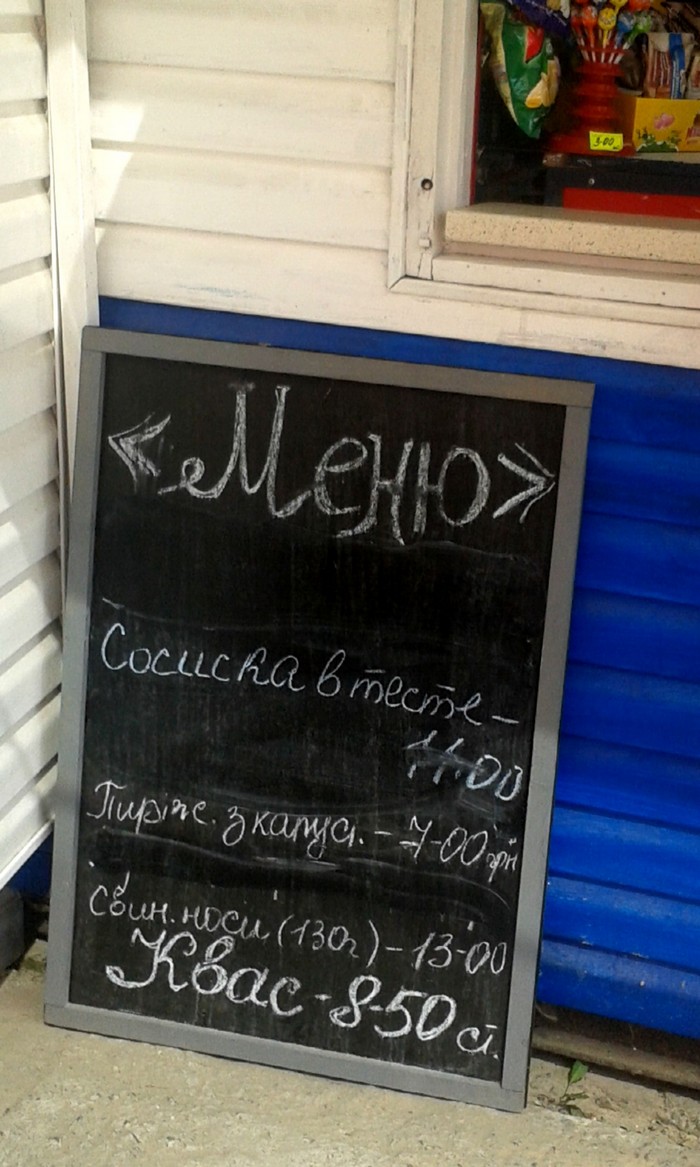 <Меню>
Сосиска в тесте –
11.00
Пиріж. з капус. – 7-00 грн
Свин. носи (130г) – 13-00
Квас - 8-50 ст.
5-00